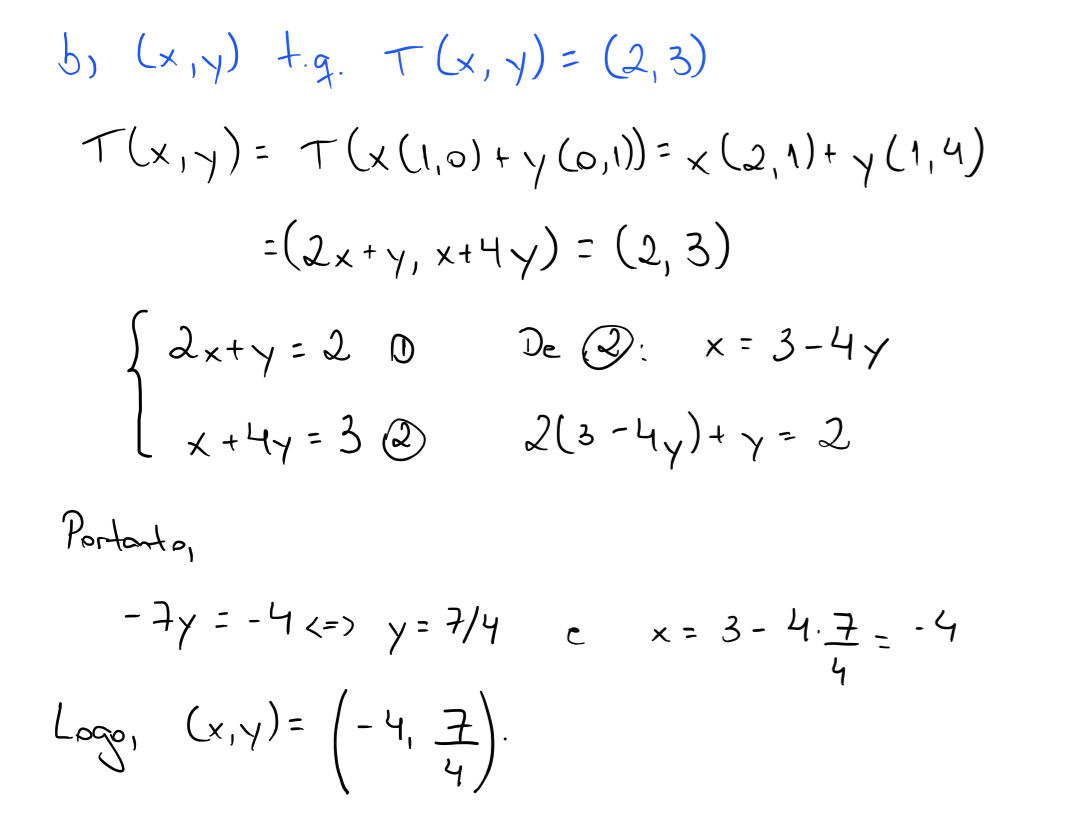 b) (x,y) t.q. T(x,y) = (2,3)
T(x,y) = T(x(1,0) + y(0,1)) = x(2,1) + y(1,4)
=(2x+y, x+4y) = (2,3)
2x+y = 2 ① De ②: x = 3-4y
x+4y = 3 ② 2(3-4y)+y = 2
Portanto,
-7y = -4 <=> y = 7/4 e x = 3 - 4·7/4 = -4
Logo, (x,y) = (-4, 7/4).